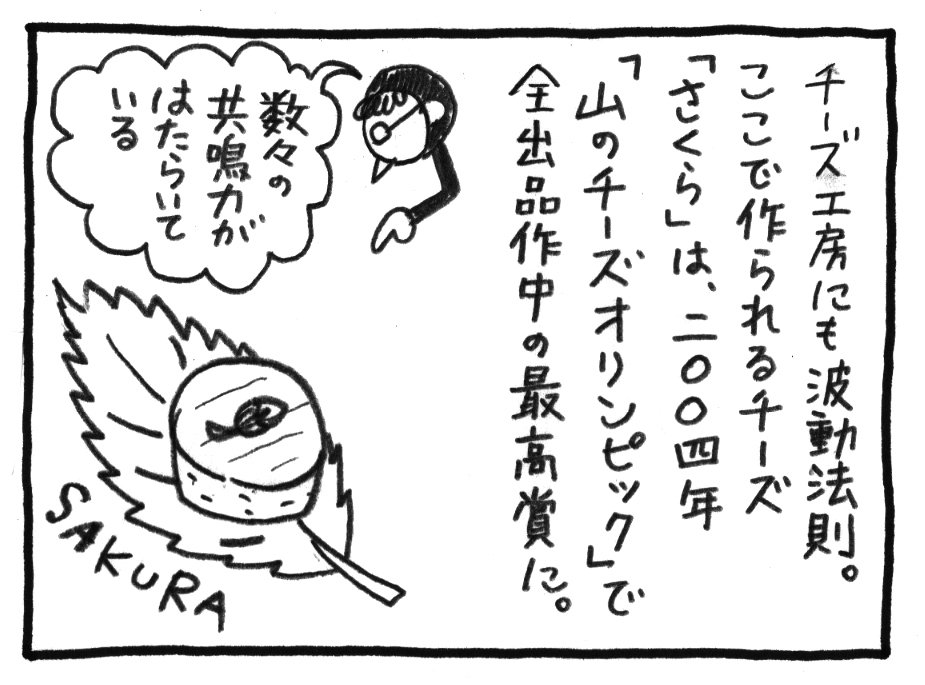 チーズ工房にも波動法則。
ここで作られるチーズ
「さくら」は、二〇〇四年
「山のチーズオリンピック」で
全出品作中の最高賞に。
数々の
共鳴力が
はたらいて
いる
SAKURA